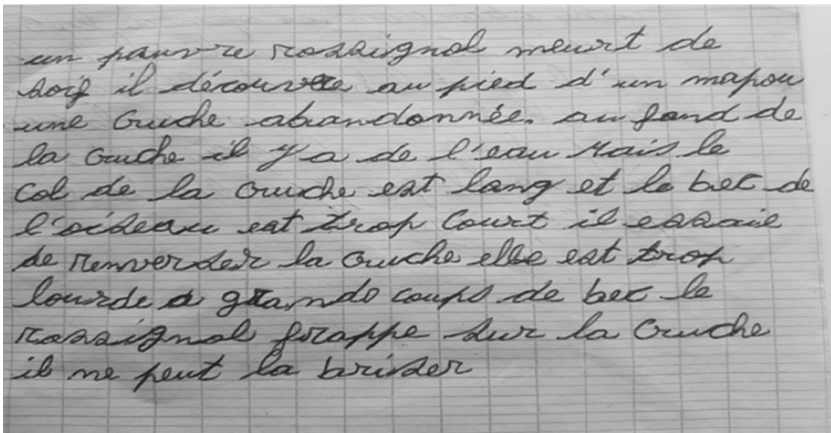 un pauvre rossignol meurt de
soif il découvre au pied d'un mapou
une cruche abandonnée. au fond de
la cruche il y a de l'eau Mais le
col de la cruche est long et le bec de
l'oiseau est trop court il essaie
de renverser la cruche elle est trop
lourde a grands coups de bec le
rossignol frappe sur la cruche
il ne peut la briser